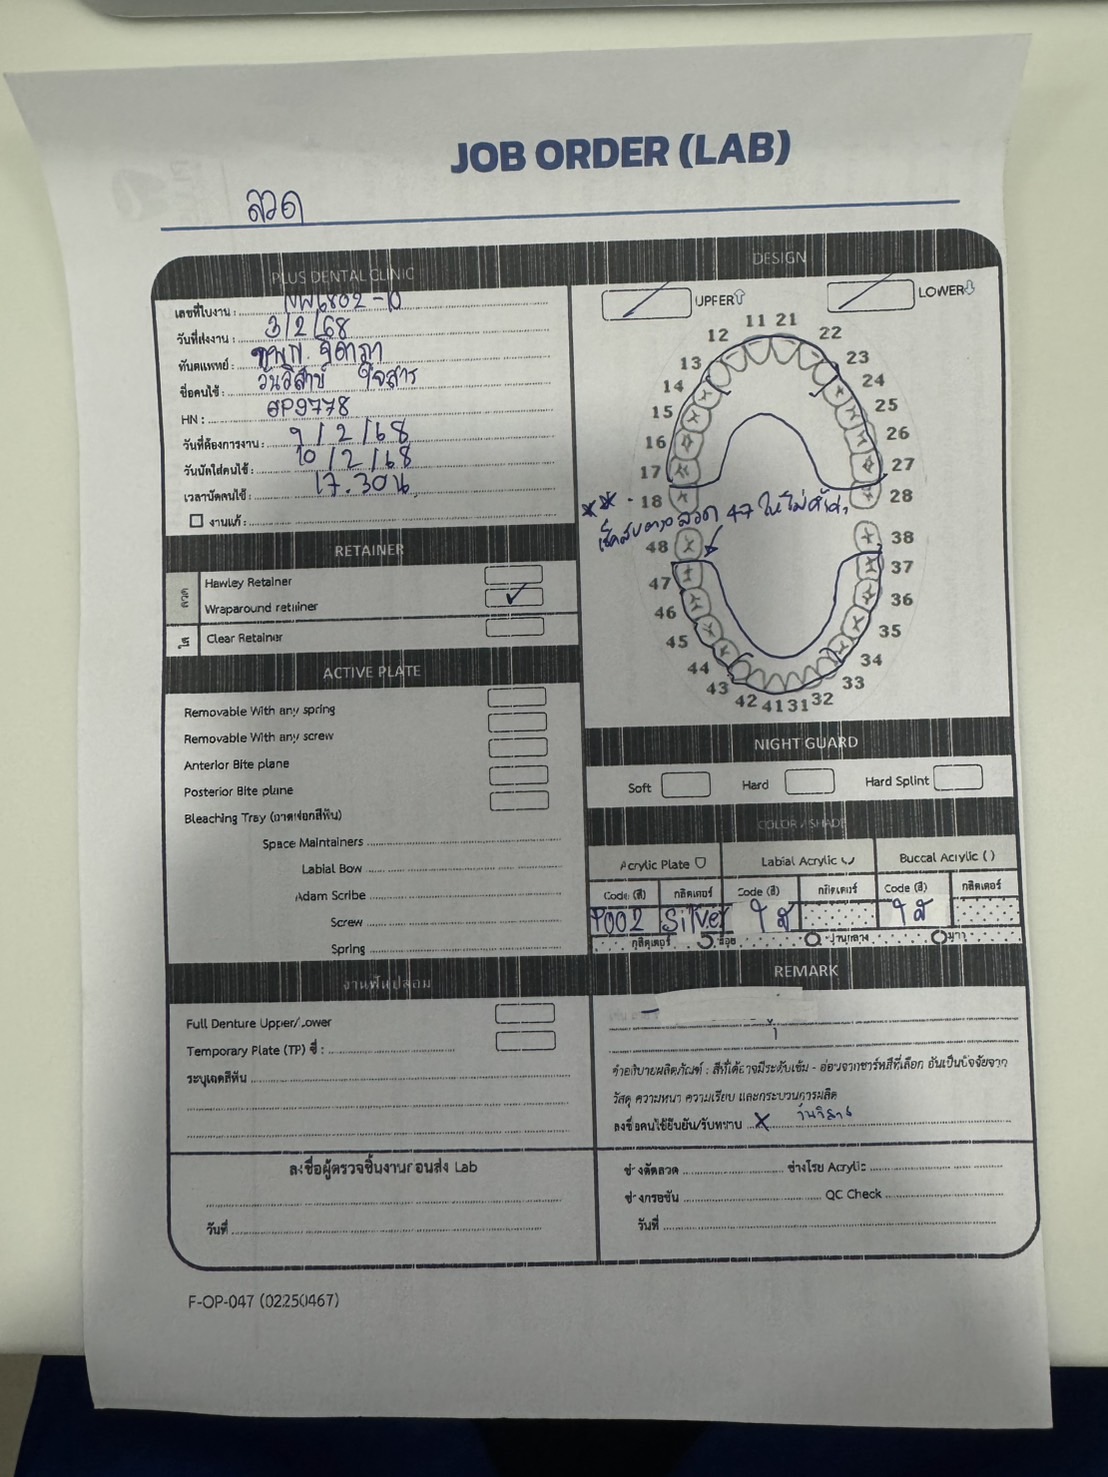 JOB ORDER (LAB)
ลวด
PLUS DENTAL CLINIC
เลขที่ใบงาน : NW6802-10
วันที่ส่งงาน : 3/2/68
ทันตแพทย์ : ทพญ. จิดาภา
ชื่อคนไข้ : วันวิสาข์ ใจสาร
HN : 8P9778
วันที่ต้องการงาน : 9/2/68
วันนัดใส่คนไข้ : 10/2/68
เวลานัดคนไข้ : 17.30น.
งานแก้ :
RETAINER
ลวด
Hawley Retainer
Wraparound retainer ✓
ใส
Clear Retainer
ACTIVE PLATE
Removable With any spring
Removable With any screw
Anterior Bite plane
Posterior Bite plane
Bleaching Tray (ถาดฟอกสีฟัน)
Space Maintainers
Labial Bow
Adam Scribe
Screw
Spring
งานฟันปลอม
Full Denture Upper/Lower
Temporary Plate (TP) ซี่ :
ระบุเฉดสีฟัน
ลงชื่อผู้ตรวจชิ้นงานก่อนส่ง Lab
วันที่
DESIGN
UPPER
LOWER
11 21
12 22
13 23
14 24
15 25
16 26
17 27
18 28
** เช็คสบตรงลวด 47 ให้ไม่ค้ำ
48 38
47 37
46 36
45 35
44 34
43 33
42 41 31 32
NIGHT GUARD
Soft Hard Hard Splint
COLOR / SHADE
Acrylic Plate Labial Acrylic Buccal Acrylic ( )
Code (สี) กลิตเตอร์ Code (สี) กลิตเตอร์ Code (สี) กลิตเตอร์
P002 Silver ใส ใส
กลิตเตอร์ น้อย ปานกลาง มาก
REMARK
คำอธิบายผลิตภัณฑ์ : สีที่ได้อาจมีระดับเข้ม - อ่อนจากชาร์ทสีที่เลือก อันเป็นปัจจัยจาก
วัสดุ ความหนา ความเรียบ และกระบวนการผลิต
ลงชื่อคนไข้ยืนยัน/รับทราบ X วันวิสาข์
ช่างดัดลวด ช่างโรย Acrylic
ช่างกรอขัน QC Check
วันที่
F-OP-047 (02250467)